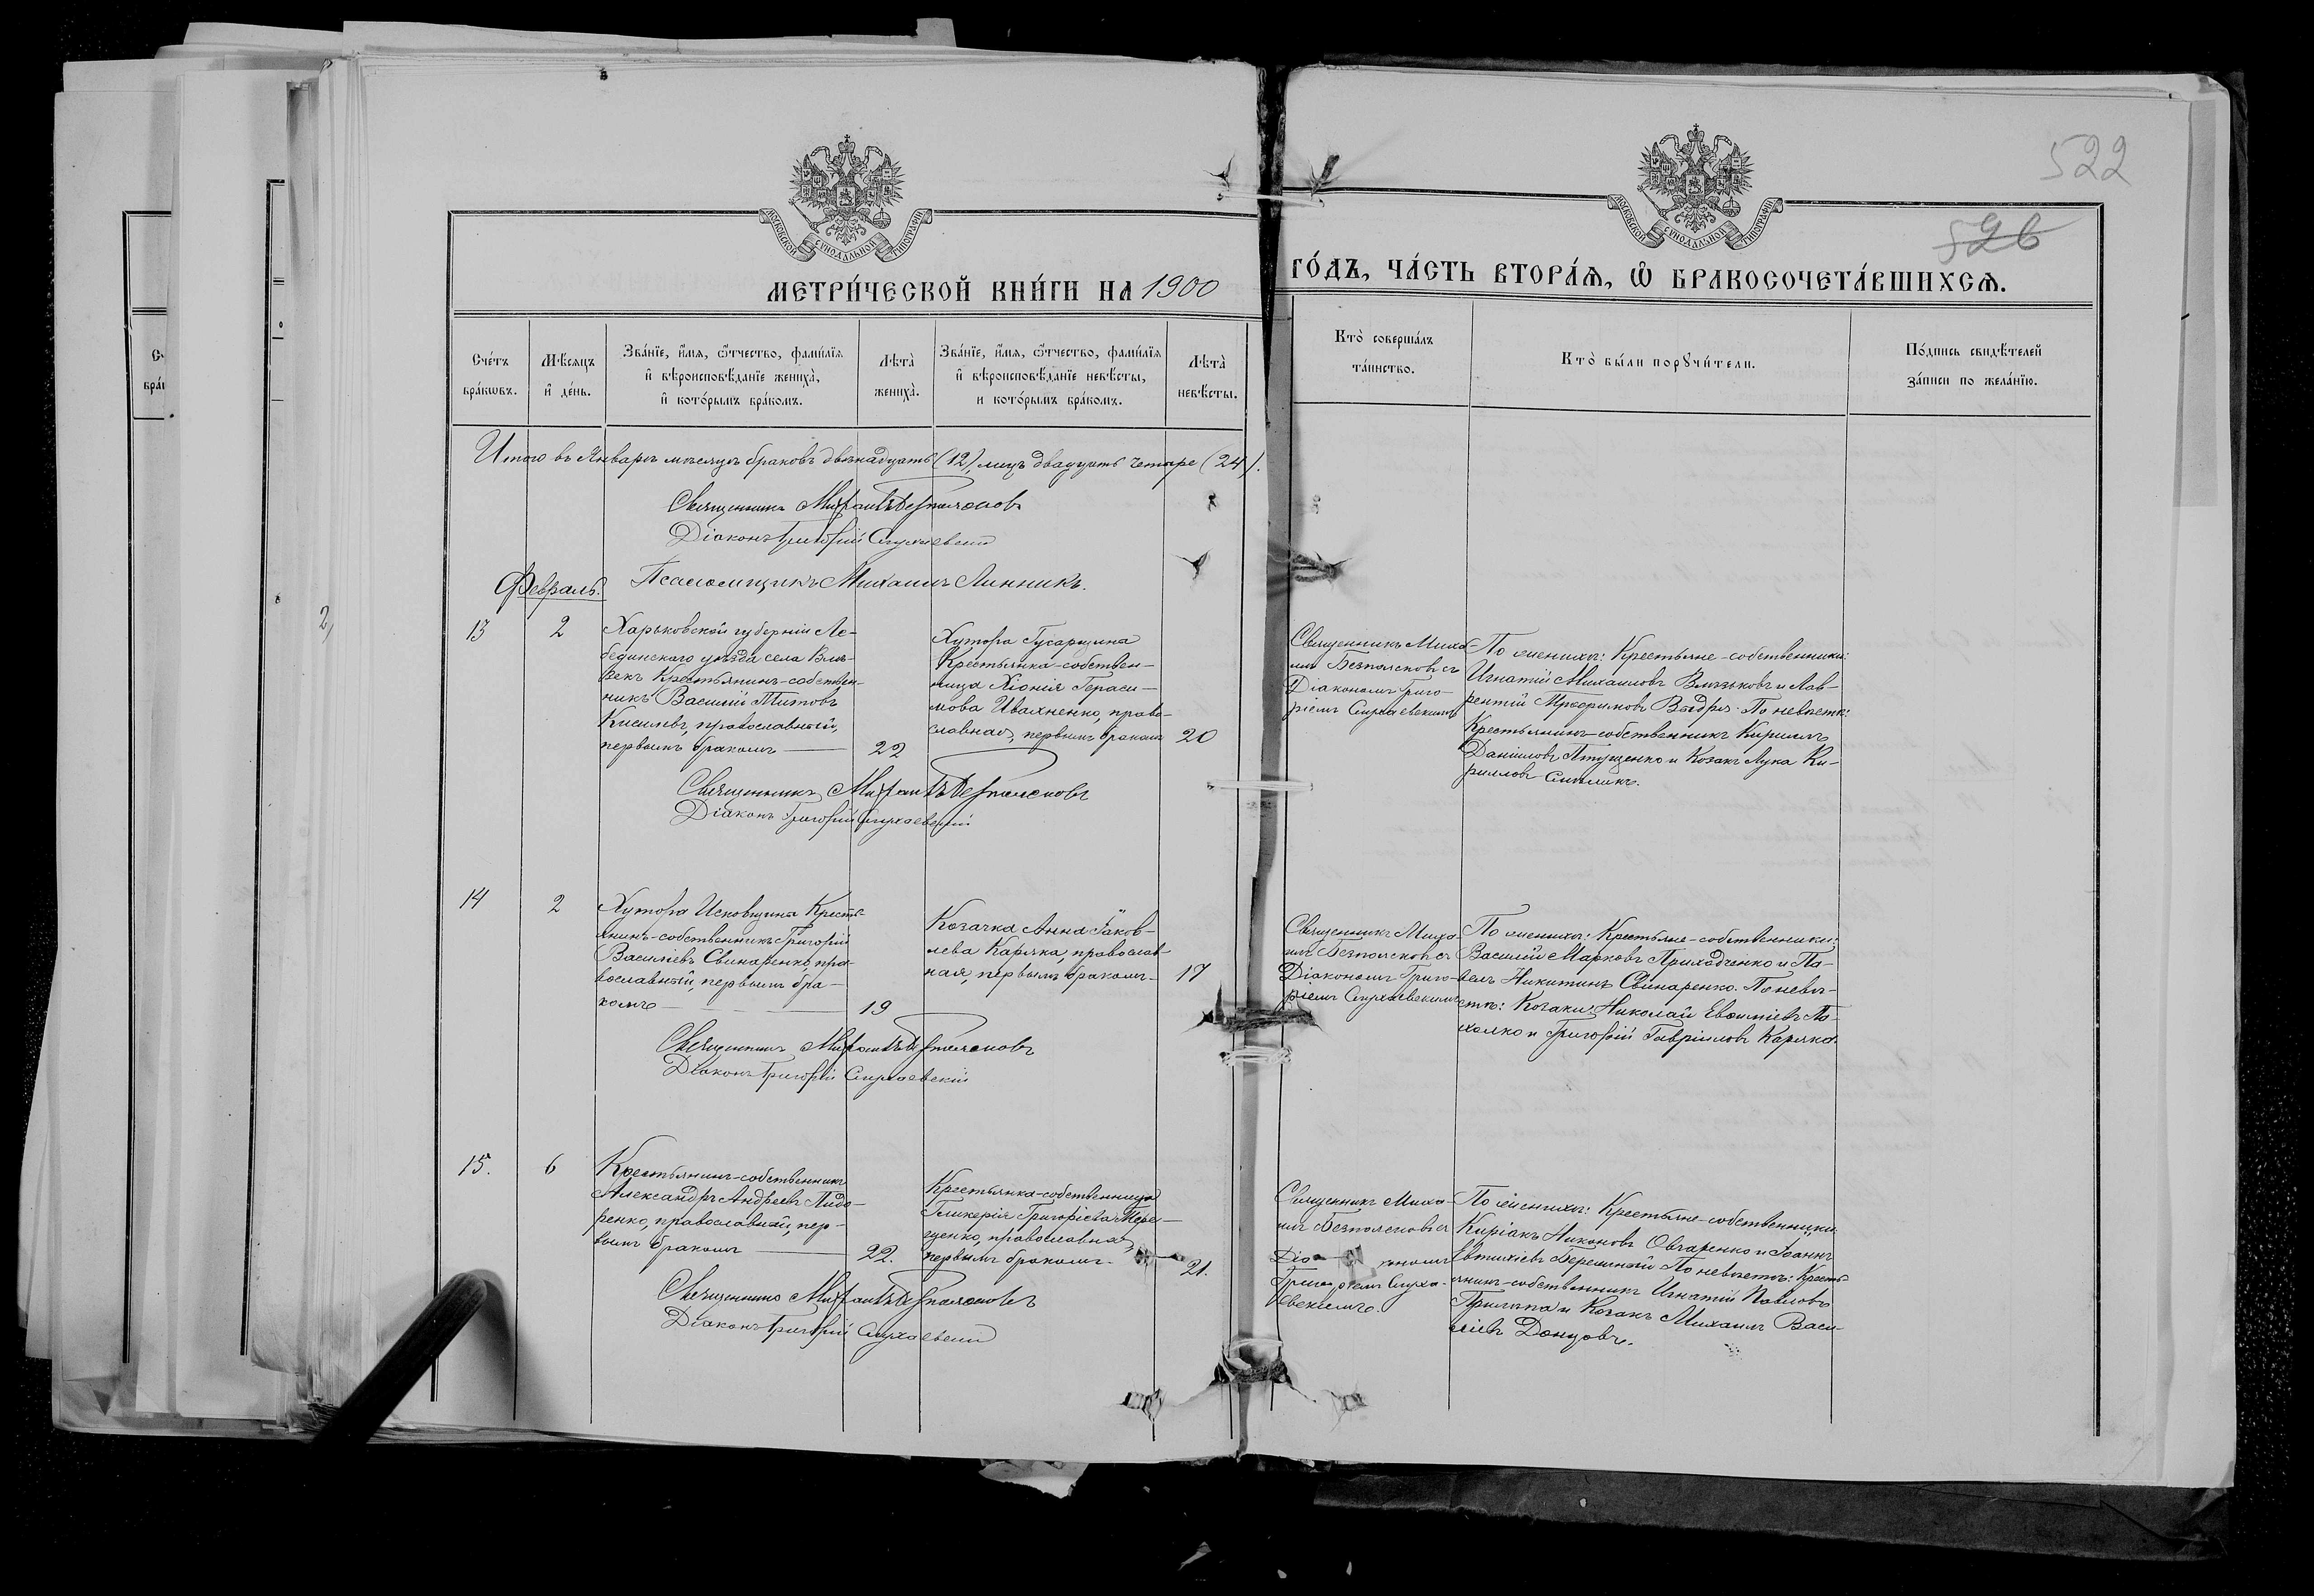 522
526
МЕТРИ́ЧЕСКОЙ КНИ́ГИ НА 1900
ГО́ДЪ, ЧА́СТЬ ВТОРА́Я, Ѡ БРАКОСОЧЕТА́ВШИХСЯ.
Сче́тъ бра́ковъ.
Мѣ́сяцъ и де́нь.
Зва́нїе, и́мя, ѻ҆́тчество, фами́лїя
и вѣроисповѣ́данїе жениха̀,
и кото́рымъ бра́комъ.
Лѣта̀ жениха̀.
Зва́нїе, и́мя, ѻ҆́тчество, фами́лїя
и вѣроисповѣ́данїе невѣ́сты,
и кото́рымъ бра́комъ.
Лѣта̀ невѣ́сты.
Кто̀ соверша́лъ
та́инство.
Кто̀ бы́ли порꙋчи́тели.
По́дпись свидѣ́телей
за́писи по жела́нїю.
Итого въ Январѣ мѣсяцѣ браковъ двѣнадцать (12), лицъ двадцать четыре (24).
Священникъ Михаилъ Безпалсковъ
Діаконъ Григорій Слухаевскій
Псаломщикъ Михаилъ Линникъ.
Февраль.
13
2
Харьковской губерніи Ле-
бединскаго уѣзда села
Крестьянинъ-собствен-
никъ Василій Титовъ
Киселевъ, православный,
первымъ бракомъ
22
Хутора Гусарщина
Крестьянка-собствен-
ница Хіонія Гераси-
мова Ивахненко, право-
славная, первымъ бракомъ
20
Священникъ Миха-
илъ Безпалсковъ съ
Діакономъ Григо-
ріемъ Слухаевскимъ
По женихѣ: Крестьяне-собственники:
Игнатій Михаиловъ и Лав-
рентій Трофимовъ По невѣстѣ:
Крестьянинъ-собственникъ Кириллъ
Даниловъ Птущенко и Козакъ Лука Ки-
рилловъ
Священникъ Михаилъ Безпалсковъ
Діаконъ Григорій Слухаевскій
14
2
Хутора Исковщина Кресть-
янинъ-собственникъ Григорій
Василіевъ Свинаренко, пра-
вославный, первымъ бра-
комъ
19
Козачка Анна Іаков-
лева Каряка, православ-
ная, первымъ бракомъ
17
Священникъ Миха-
илъ Безпалсковъ съ
Діакономъ Григо-
ріемъ Слухаевскимъ
По женихѣ: Крестьяне-собственники:
Василій Марковъ Приходченко и Па-
велъ Никитинъ Свинаренко. По невѣ-
стѣ: Козаки: Николай Евѳиміевъ
и Григорій Гавріиловъ Каряка.
Священникъ Михаилъ Безпалсковъ
Діаконъ Григорій Слухаевскій
15.
6
Крестьянинъ-собственникъ
Александръ Андреевъ Лидо-
ренко, православный, пер-
вымъ бракомъ
22.
Крестьянка-собственница
Гликерія Григоріева Тере-
щенко, православная,
первымъ бракомъ.
21.
Священникъ Миха-
илъ Безпалсковъ съ
Діакономъ
Григоріемъ Слуха-
евскимъ.
По женихѣ: Крестьяне-собственники:
Киріакъ Никоновъ Овчаренко и Іоаннъ
Евтихіевъ Бережный По невѣстѣ: Кресть-
янинъ-собственникъ Игнатій Павловъ
Прилипа и Козакъ Михаилъ Васи-
ліевъ Донцовъ.
Священникъ Михаилъ Безпалсковъ
Діаконъ Григорій Слухаевскій